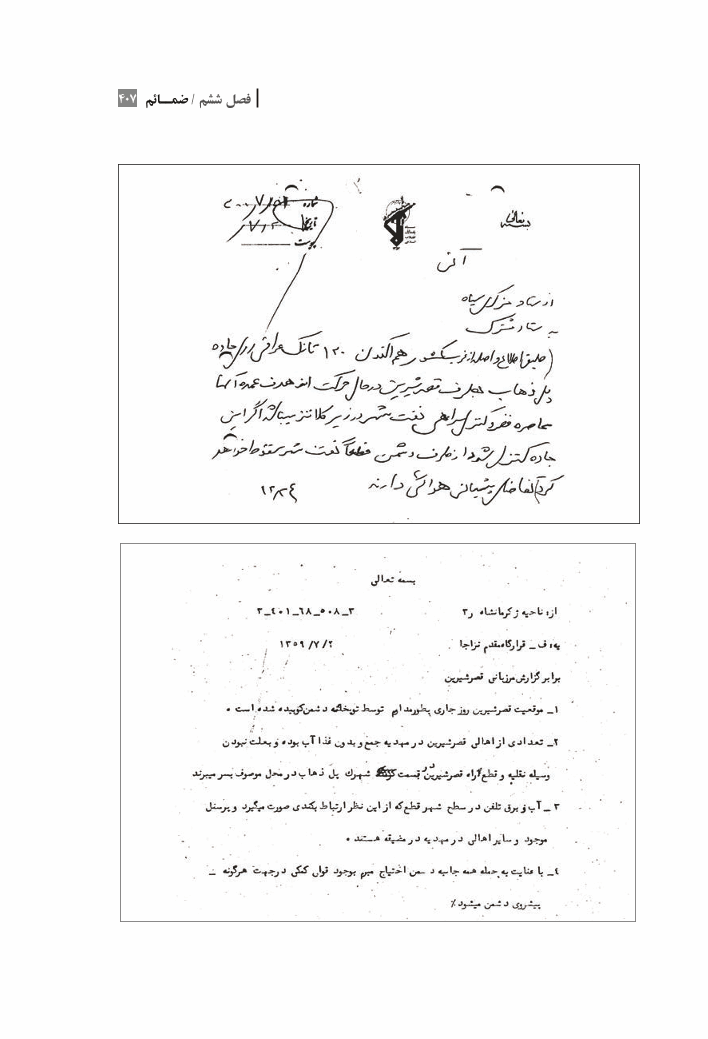 فصل ششم / ضمـــائم ۴۰۷
بسمه تعالی
شماره
تاریخ
پیوست
آنی
از ستاد مرکزی سپاه
به ستاد مشترک
طبق اطلاع واصله از غرب کشور هم اکنون ۱۲۰ تانک عراقی روی جاده
پل ذهاب بطرف قصرشیرین در حال حرکت اند هدف عمده آنها
محاصره قصر و کنترل راهی نفت شهر در زیر کلانتر میباشد اگر این
جاده کنترل شود از طرف دشمن قطعاً نفت شهر سقوط خواهد
کرد تقاضای پشتیبانی هوائی دارند
بسمه تعالی
از: ناحیه ژ کرمانشاه ر۳ ۳_۵۰۸_۶۸_۴۰۱_۳
به: ف _ قرارگاه مقدم نزاجا ۱۳۵۹/۷/۲
برابر گزارش مرزبانی قصرشیرین
۱_ موقعیت قصرشیرین روز جاری بطور مداوم توسط توپخانه دشمن کوبیده شده است .
۲_ تعدادی از اهالی قصرشیرین در مهدیه جمع و بدون غذا آب بوده و بعلت نبودن
وسیله نقلیه و قطع راه قصرشیرین در قسمت شهرك پل ذهاب در محل موصوف بسر میبرند
۳ _ آب و برق تلفن در سطح شهر قطع که از این نظر ارتباط بکندی صورت میگیرد و پرسنل
موجود و سایر اهالی در مهدیه در مضیقه هستند .
٤_ با عنایت به حمله همه جانبه دشمن احتیاج مبرم بوجود قوای کمکی در جهت هرگونه _
پیشروی دشمن میشود٪